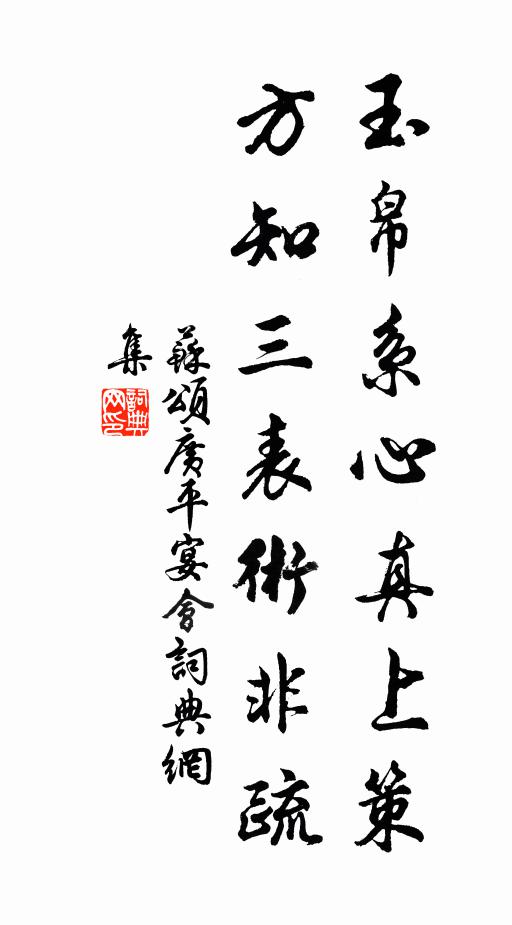 玉帛系心真上策
方知三表術非疏
蘇頌廣平宴會詞典網
集
詞典网印